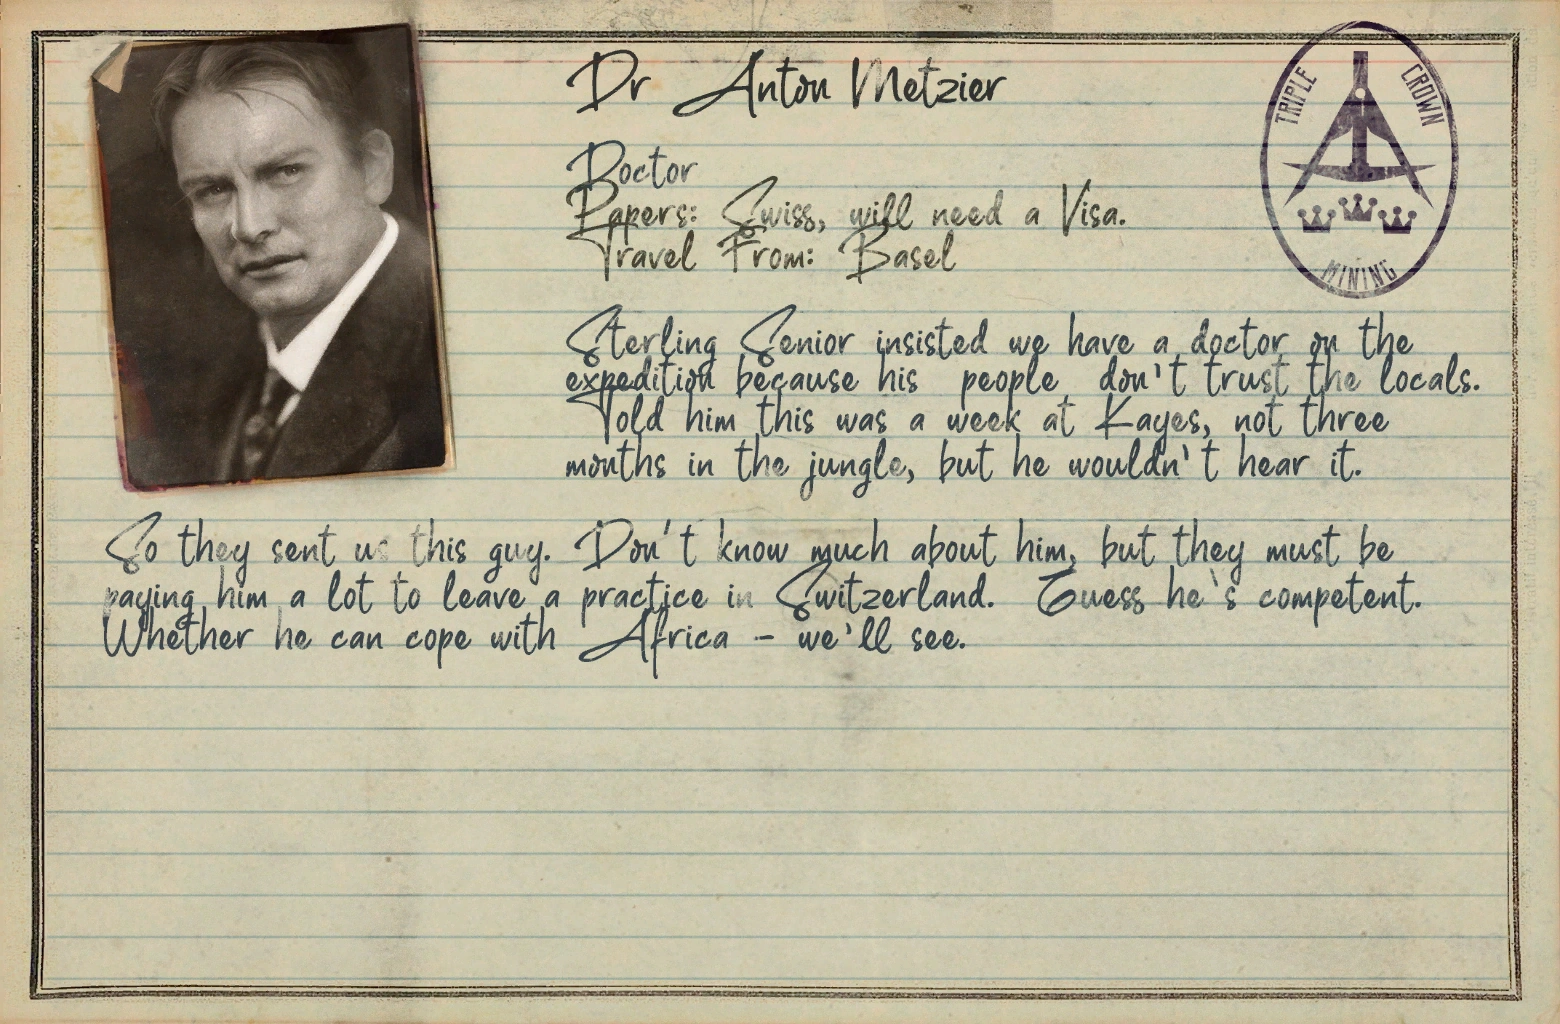 Dr Anton Metzier
TRIPLE CROWN
MINING
Doctor
Papers: Swiss, will need a Visa.
Travel From: Basel
Sterling Senior insisted we have a doctor on the
expedition because his people don't trust the locals.
Told him this was a week at Kayes, not three
months in the jungle, but he wouldn't hear it.
So they sent us this guy. Don't know much about him, but they must be
paying him a lot to leave a practice in Switzerland. Guess he`s competent.
Whether he can cope with Africa - we'll see.